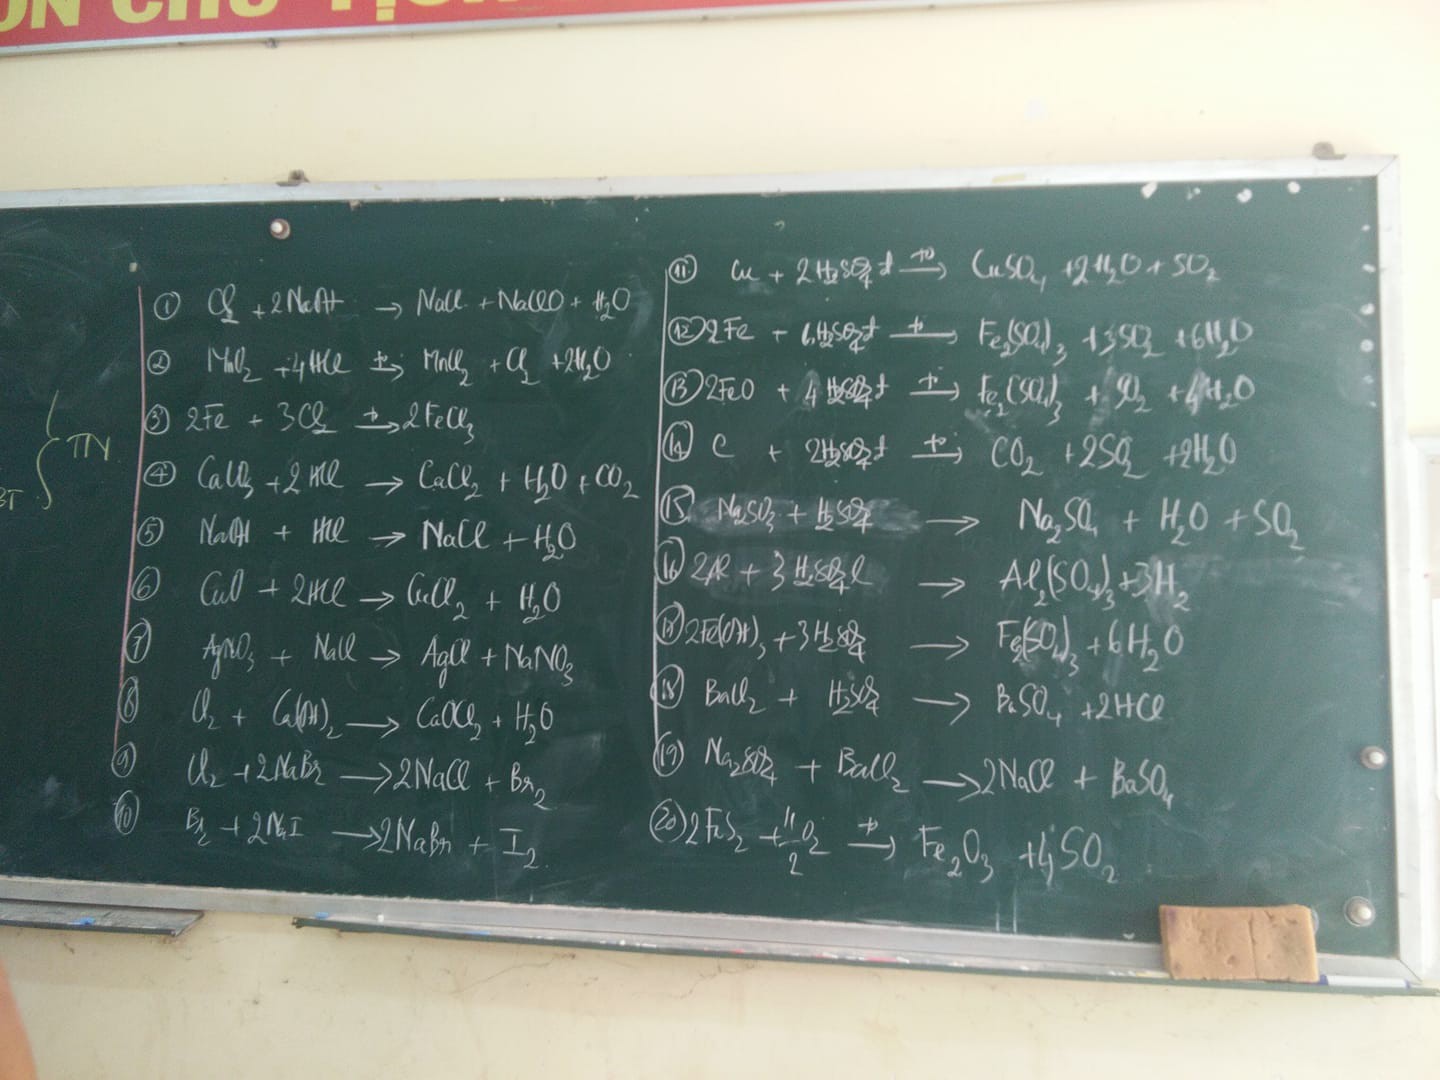 TN
BT
① Cl₂ + 2NaOH → NaCl + NaClO + H₂O
② MnO₂ + 4HCl –t°→ MnCl₂ + Cl₂ + 2H₂O
③ 2Fe + 3Cl₂ –t°→ 2FeCl₃
④ CaCO₃ + 2HCl → CaCl₂ + H₂O + CO₂
⑤ NaOH + HCl → NaCl + H₂O
⑥ CuO + 2HCl → CuCl₂ + H₂O
⑦ AgNO₃ + NaCl → AgCl + NaNO₃
⑧ Cl₂ + Ca(OH)₂ → CaOCl₂ + H₂O
⑨ Cl₂ + 2NaBr → 2NaCl + Br₂
⑩ Br₂ + 2NaI → 2NaBr + I₂
⑪ Cu + 2H₂SO₄đ –t°→ CuSO₄ + 2H₂O + SO₂
⑫ 2Fe + 6H₂SO₄đ –t°→ Fe₂(SO₄)₃ + 3SO₂ + 6H₂O
⑬ 2FeO + 4H₂SO₄đ –t°→ Fe₂(SO₄)₃ + SO₂ + 4H₂O
⑭ C + 2H₂SO₄đ –t°→ CO₂ + 2SO₂ + 2H₂O
⑮ Na₂SO₃ + H₂SO₄ → Na₂SO₄ + H₂O + SO₂
⑯ 2Al + 3H₂SO₄l → Al₂(SO₄)₃ + 3H₂
⑰ 2Fe(OH)₃ + 3H₂SO₄ → Fe₂(SO₄)₃ + 6H₂O
⑱ BaCl₂ + H₂SO₄ → BaSO₄ + 2HCl
⑲ Na₂SO₄ + BaCl₂ → 2NaCl + BaSO₄
⑳ 2FeS₂ + 11/2 O₂ –t°→ Fe₂O₃ + 4SO₂